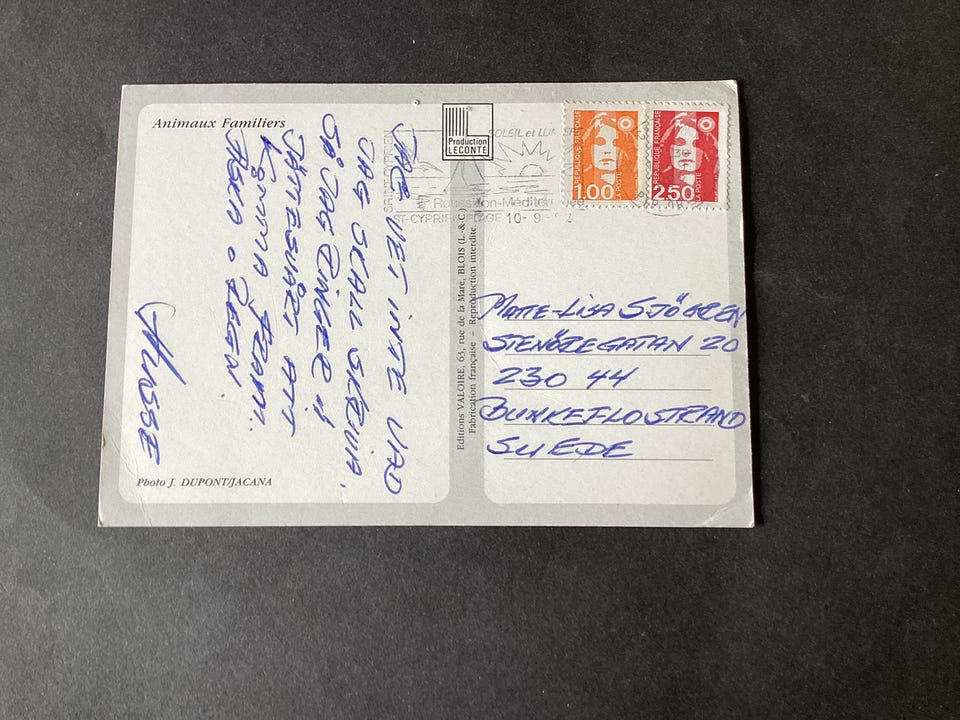 Animaux Familiers
JAG VET INTE VAD
JAG SKALL SKRIVA.
SÅ JAG RINGER !!
JÄTTESVÅRT ATT
KOMMA FRAM.
ÅSKA o REGN.
HASSE
Photo J. DUPONT/JACANA
Production
LECONTE
Editions VALOIRE, 63, rue de la Mare, BLOIS (L.-&-C.)
Fabrication française – Reproduction interdite.
SAINT CYPRIEN
SOLEIL et
Roussillon-Méditer
ST-CYPRIEN PLAGE 10-9-
RÉPUBLIQUE FRANÇAISE
1,00
LA POSTE
RÉPUBLIQUE FRANÇAISE
2,50
LA POSTE
MARIE-LISA SJÖGREN
STENÖREGATAN 20
230 44
BUNKEFLOSTRAND
SUEDE